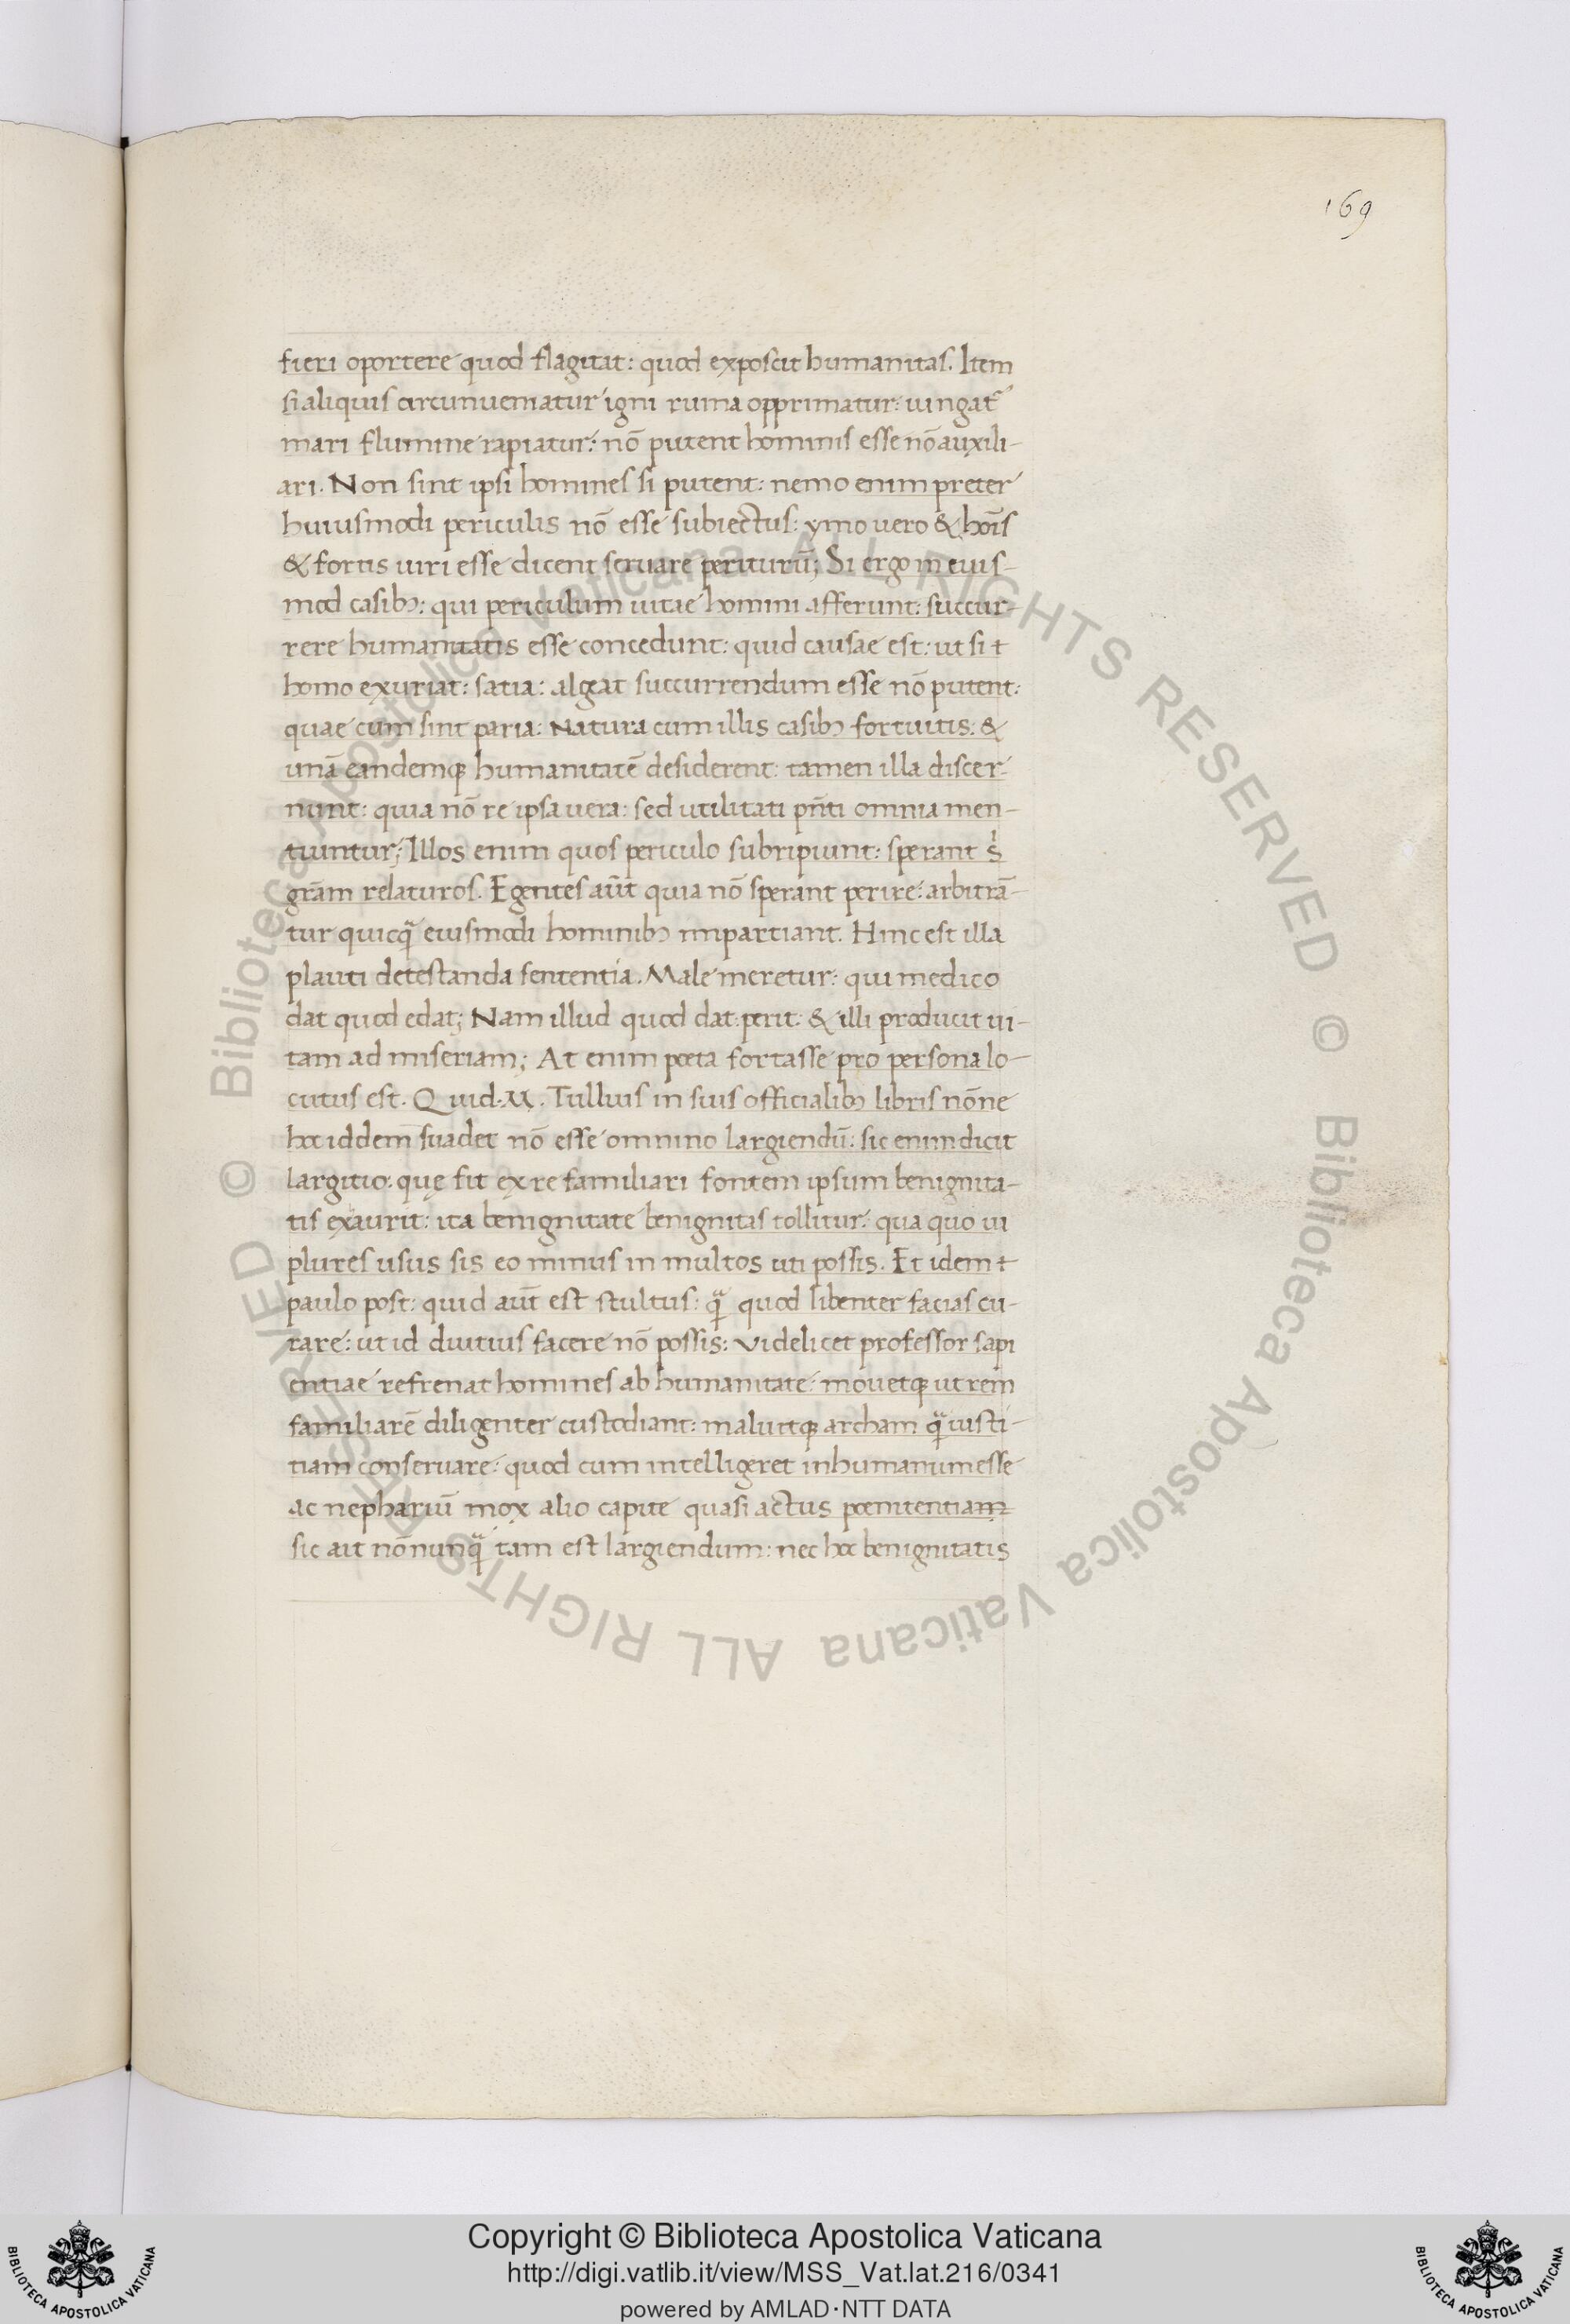 169
fieri oportere quod flagitat: quod exposcit humanitas. Item
si aliquis circunueniatur igni ruina opprimatur: uingat̃
mari flumine rapiatur: nō putent hominis esse nō auxili-
ari. Non sint ipsi homines si putent: nemo enim preter
huiusmodi periculis nō esse subiectus: ymo uero & hoĩs
& fortis uiri esse dicent seruare periturū; Si ergo in euis-
mod casibꝫ: qui periculum uitae homini afferunt: succur-
rere humanitatis esse concedunt: quid causae est: ut si t
homo exuriat: satia: algeat succurrendum esse nō putent:
quae cum sint paria: Natura cum illis casibꝫ fortuitis: &
unā eandemqꝫ humanitatē desiderent: tamen illa discer-
nunt: quia nō re ipsa uera: sed utilitati pñti omnia men-
tiuntur; Illos enim quos periculo subripiunt: sperant s̓
grãm relaturos. Egentes aūt quia nō sperant perire: arbitrā-
tur quicꝗ̃ euismodi hominibꝫ impartiant. Hinc est illa
plauti detestanda sententia. Male meretur: qui medico
dat quod edat; Nam illud quod dat perit: & illi producit ui-
tam ad miseriam; At enim poeta fortasse pro persona lo-
cutus est. Quid .M. Tullius in suis officialibꝫ libris nōne
hoc iddem suadet nō esse omnino largiendū: sic enim dicit
largitio: quę fit ex re familiari fontem ipsum benignita-
tis exaurit: ita benignitate benignitas tollitur: qua quo ui
plures usus sis eo minus in multos uti possis. Et idem t
paulo post: quid aūt est stultus: ꝗ̃ quod libenter facias cu-
rare: ut id diutius facere nō possis: Videlicet professor sapi
entiae refrenat homines ab humanitate: mouetqꝫ ut rem
familiarē diligenter custodiant: maluitqꝫ archam ꝗ̃ iusti-
tiam conseruare: quod cum intelligeret inhumanum esse
ac nephariū mox alio capite quasi actus poenitentiam
sic ait nōnunꝗ̃ tam est largiendum: nec hoc benignitatis
© Biblioteca Apostolica Vaticana ALL RIGHTS RESERVED © Biblioteca Apostolica Vaticana ALL RIGHTS RESERVED
Copyright © Biblioteca Apostolica Vaticana
http://digi.vatlib.it/view/MSS_Vat.lat.216/0341
powered by AMLAD·NTT DATA
BIBLIOTECA APOSTOLICA VATICANA
BIBLIOTECA APOSTOLICA VATICANA